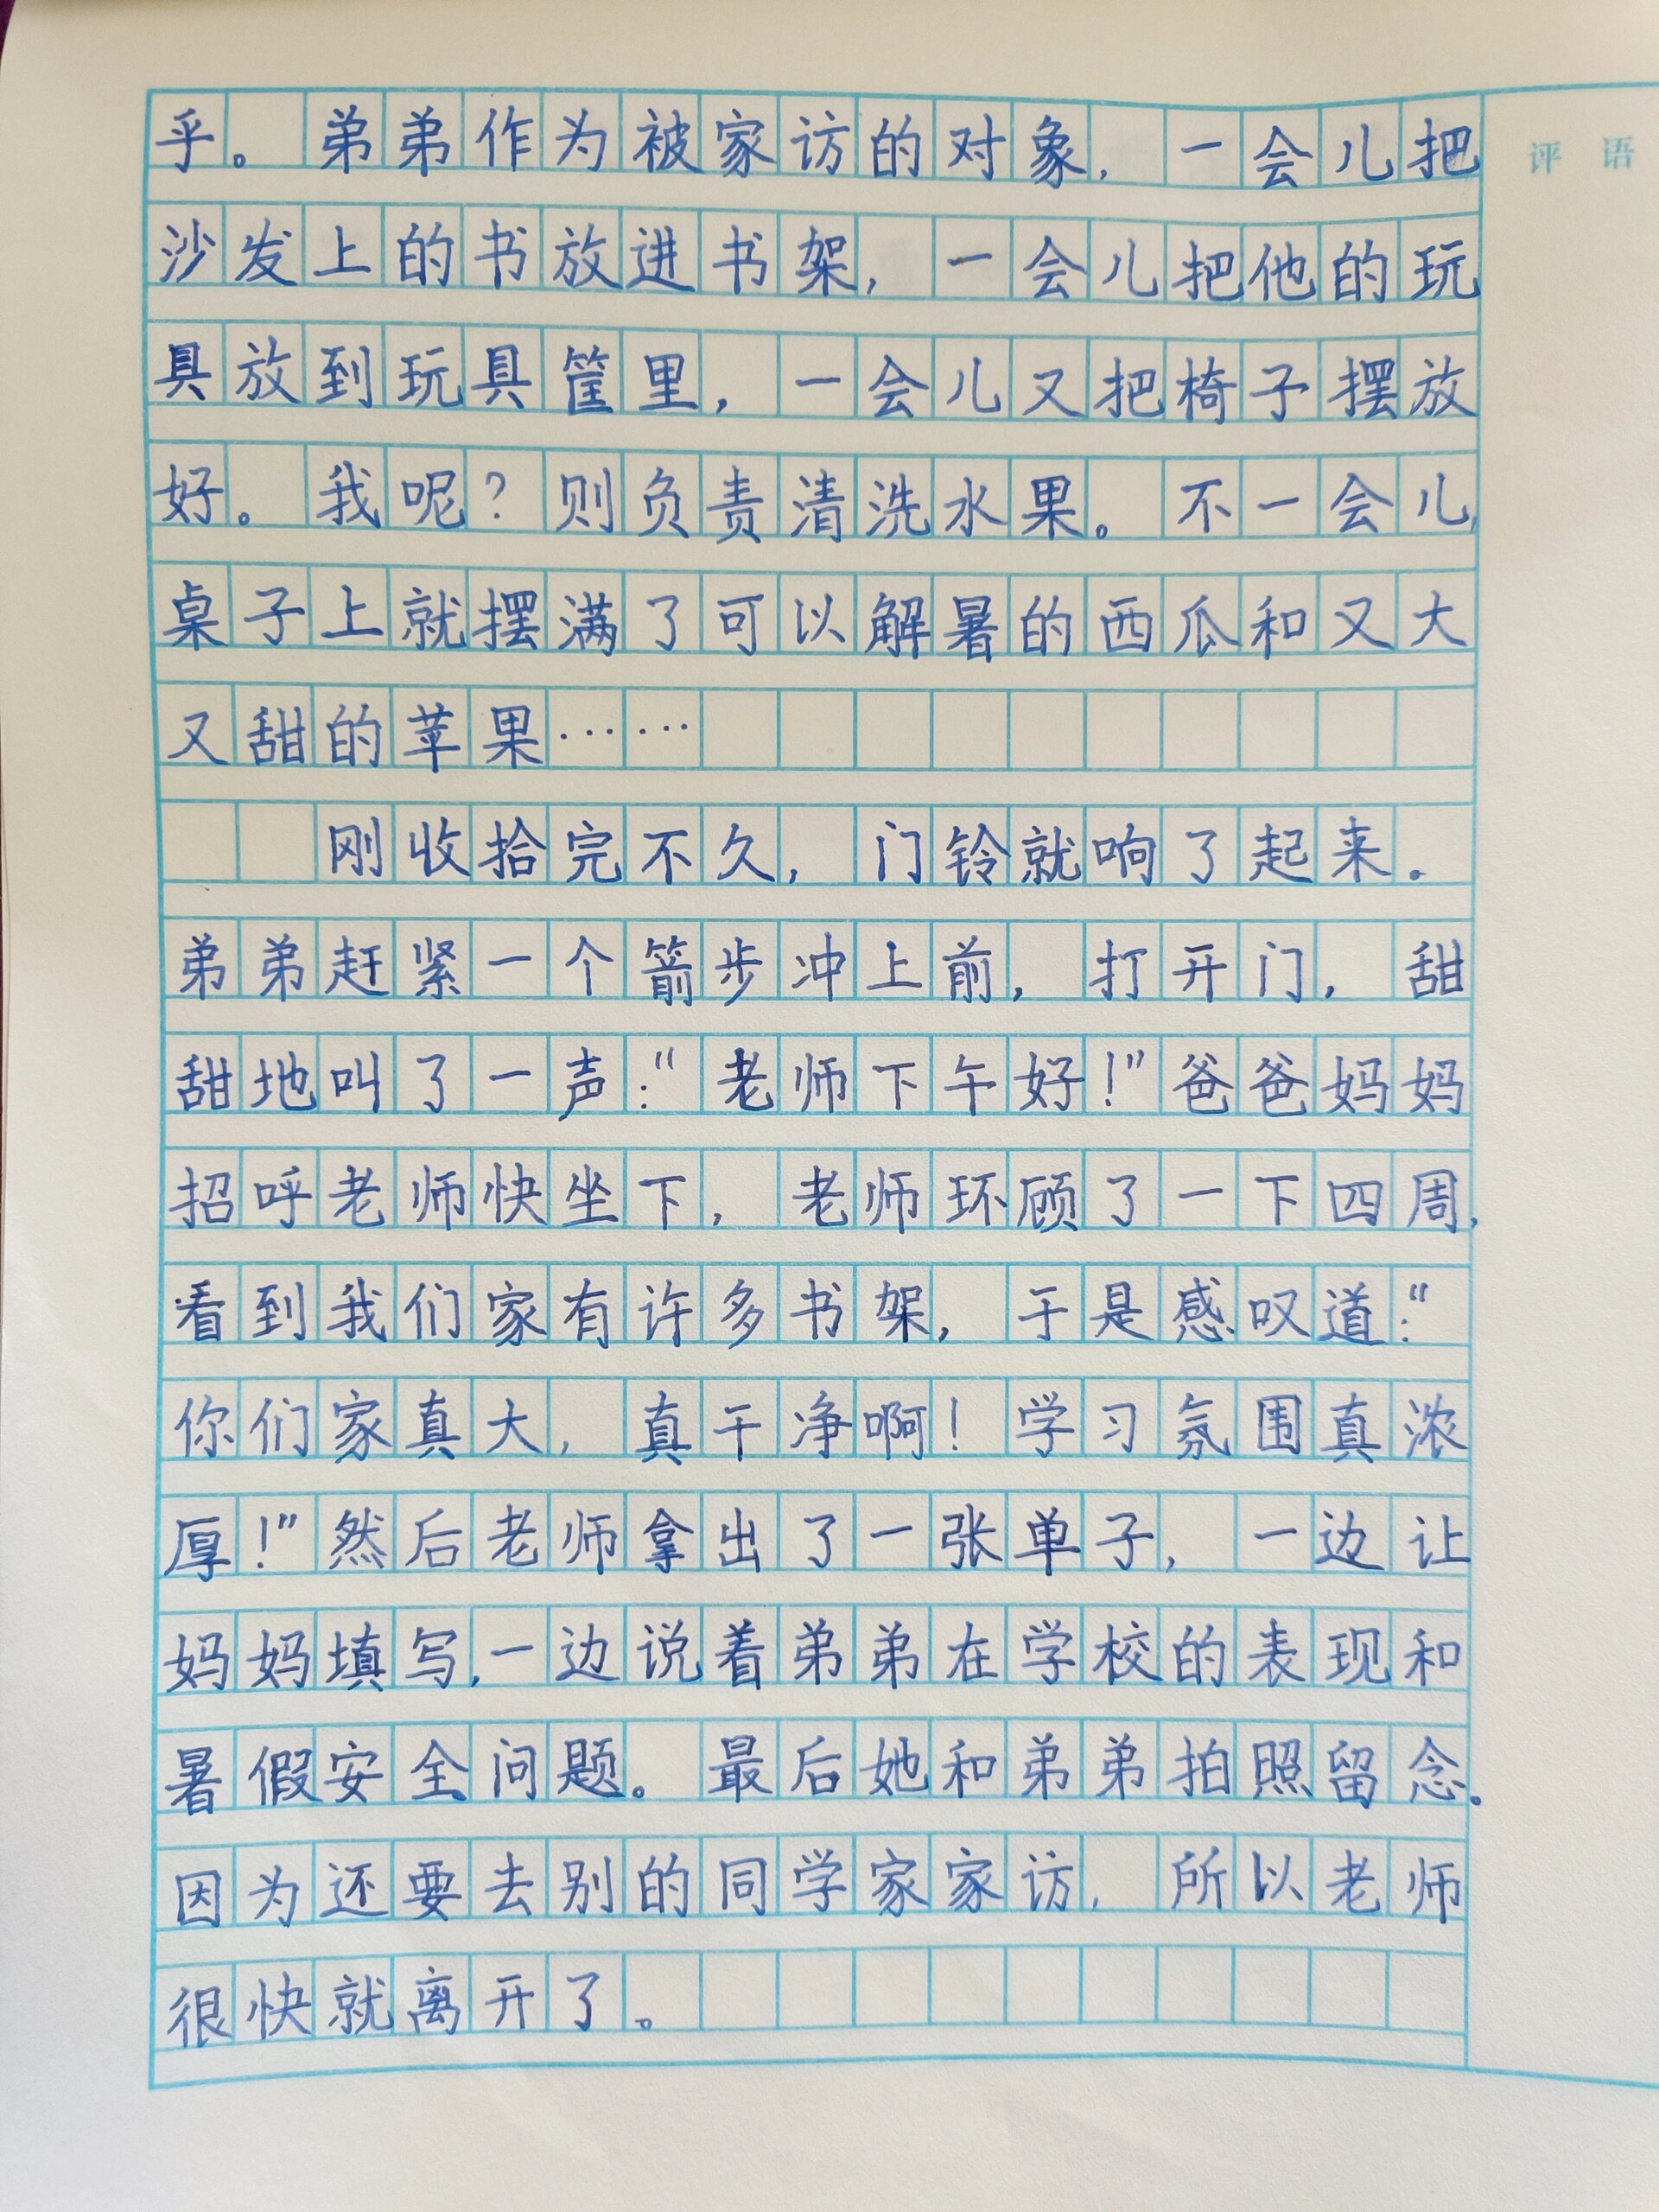 乎。弟弟作为被家访的对象，一会儿把
评语
沙发上的书放进书架，一会儿把他的玩
具放到玩具筐里，一会儿又把椅子摆放
好。我呢？则负责清洗水果。不一会儿，
桌子上就摆满了可以解暑的西瓜和又大
又甜的苹果……
刚收拾完不久，门铃就响了起来。
弟弟赶紧一个箭步冲上前，打开门，甜
甜地叫了一声：“老师下午好！”爸爸妈妈
招呼老师快坐下，老师环顾了一下四周，
看到我们家有许多书架，于是感叹道：“
你们家真大，真干净啊！学习氛围真浓
厚！”然后老师拿出了一张单子，一边让
妈妈填写，一边说着弟弟在学校的表现和
暑假安全问题。最后她和弟弟拍照留念。
因为还要去别的同学家家访，所以老师
很快就离开了。